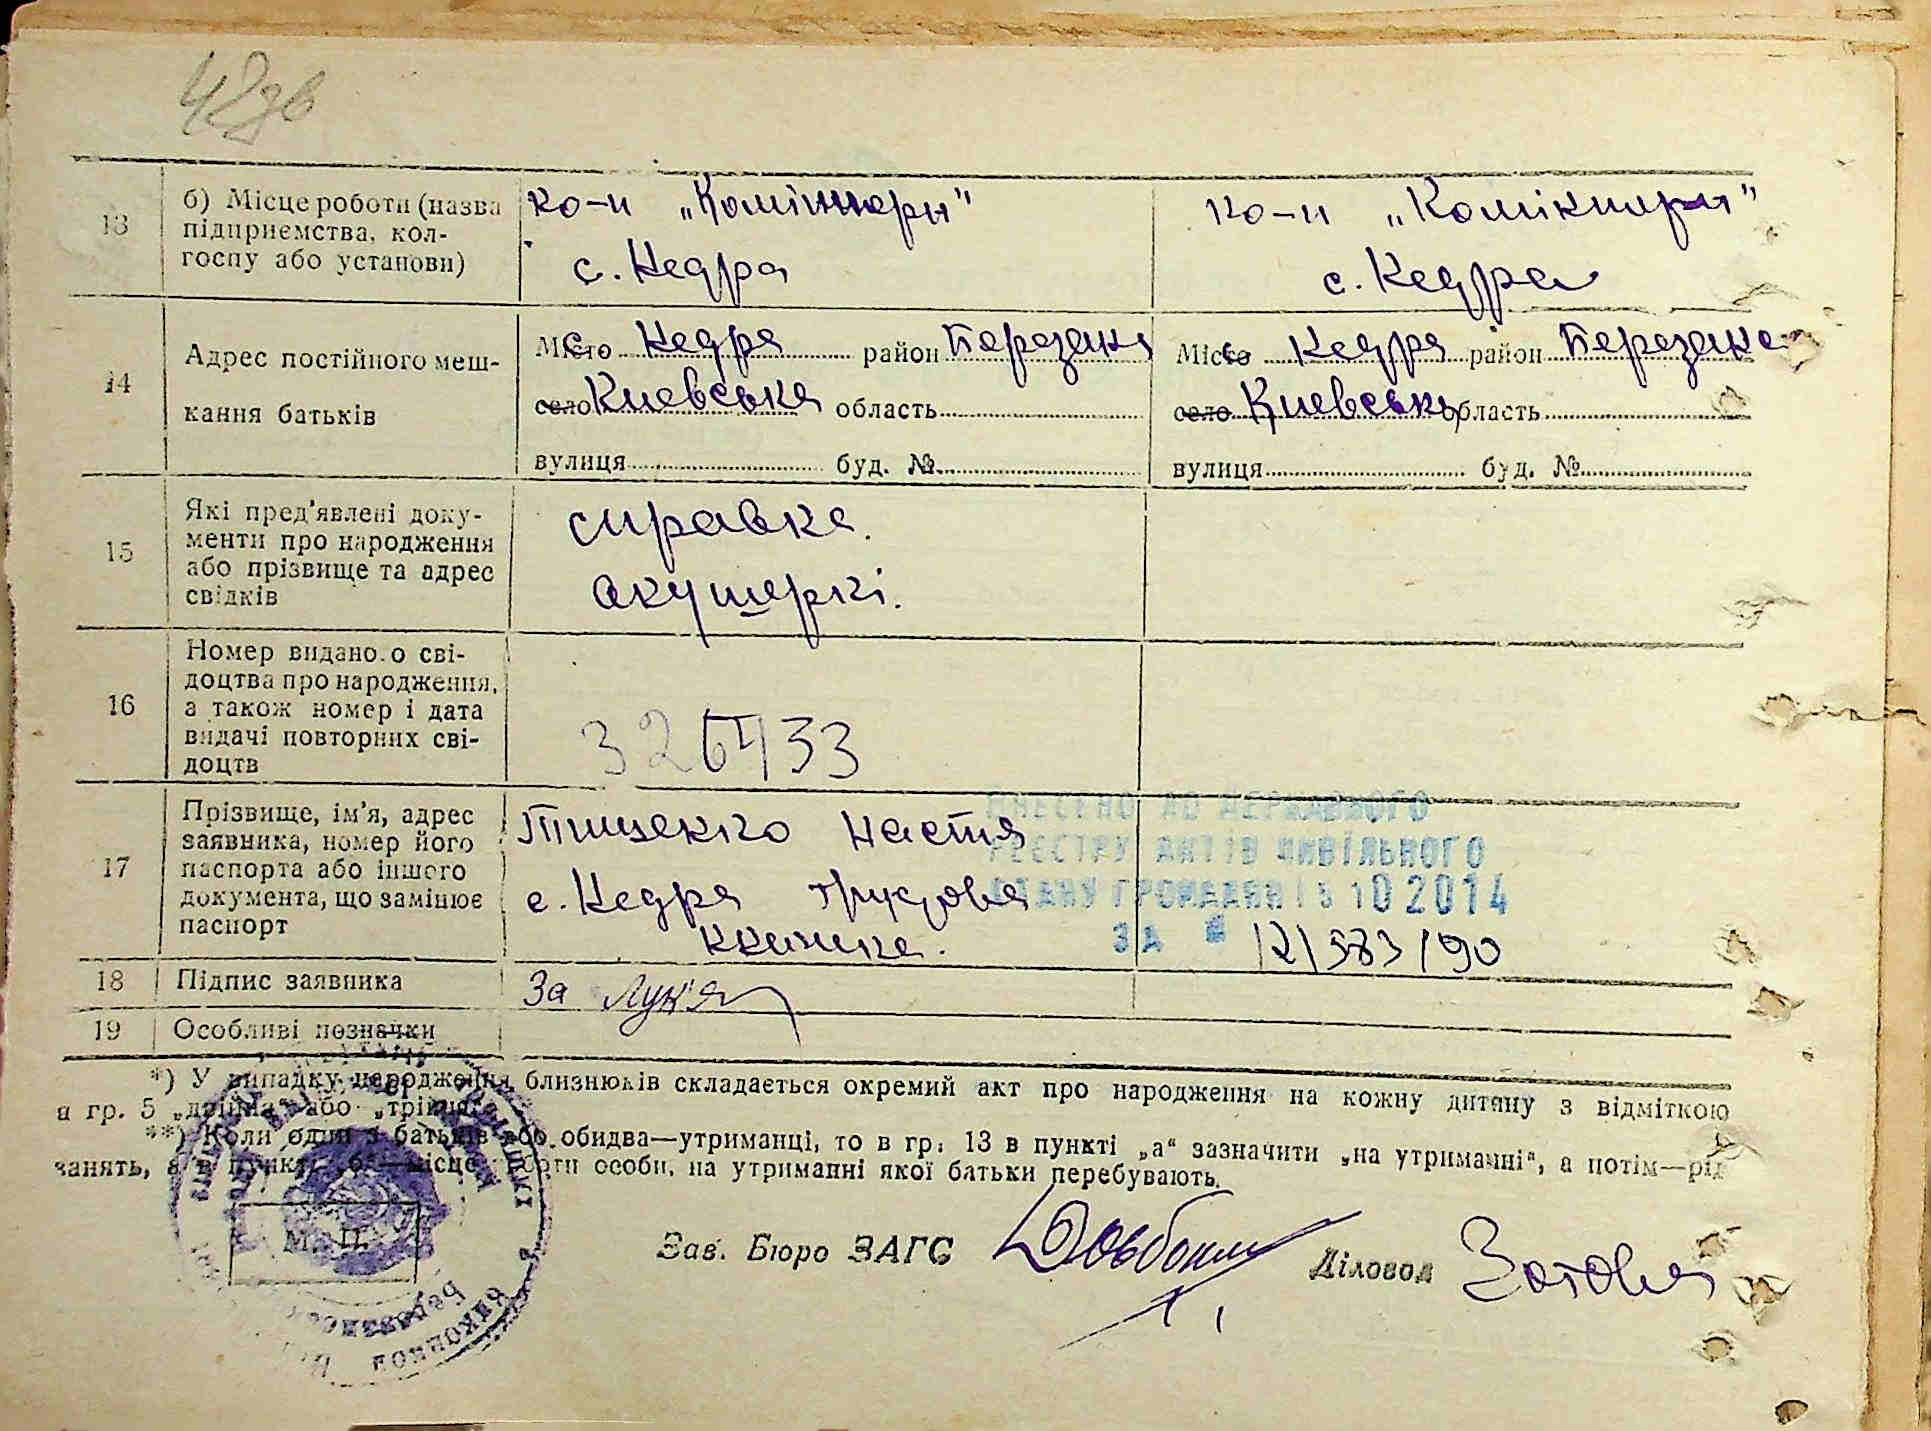 42зв
13 б) Місце роботи (назва підприємства, колгоспу або установи)
к-п „Комінтерн"
с. Недра
к-п „Комінтерн"
с. Недра
14 Адрес постійного мешкання батьків
Місто с. Недра район Березань
село Киевська область
вулиця буд. №
Місто с. Недра район Березань
село Киевська область
вулиця буд. №
15 Які пред'явлені документи про народження або прізвище та адрес свідків
справка
акушеркі.
16 Номер виданого свідоцтва про народження, а також номер і дата видачі повторних свідоцтв
17 Прізвище, ім'я, адрес заявника, номер його паспорта або іншого документа, що замінює паспорт
Настя
с. Недра трудова
книжка.
ВНЕСЕНО ДО ДЕРЖАВНОГО
РЕЄСТРУ АКТІВ ЦИВІЛЬНОГО
СТАНУ ГРОМАДЯН 10 2014
ЗА №
18 Підпис заявника
За Лук'я
19 Особливі позначки
*) У випадку народження близнюків складається окремий акт про народження на кожну дитину з відміткою
в гр. 5 „двійня" або „трійня".
**) Коли один з батьків або обидва—утриманці, то в гр. 13 в пункті „а" зазначити „на утриманні", а потім—рід
занять, а в пункті „б"—місце роботи особи, на утриманні якої батьки перебувають.
М. П.
Зав. Бюро ЗАГС
Діловод Зотова